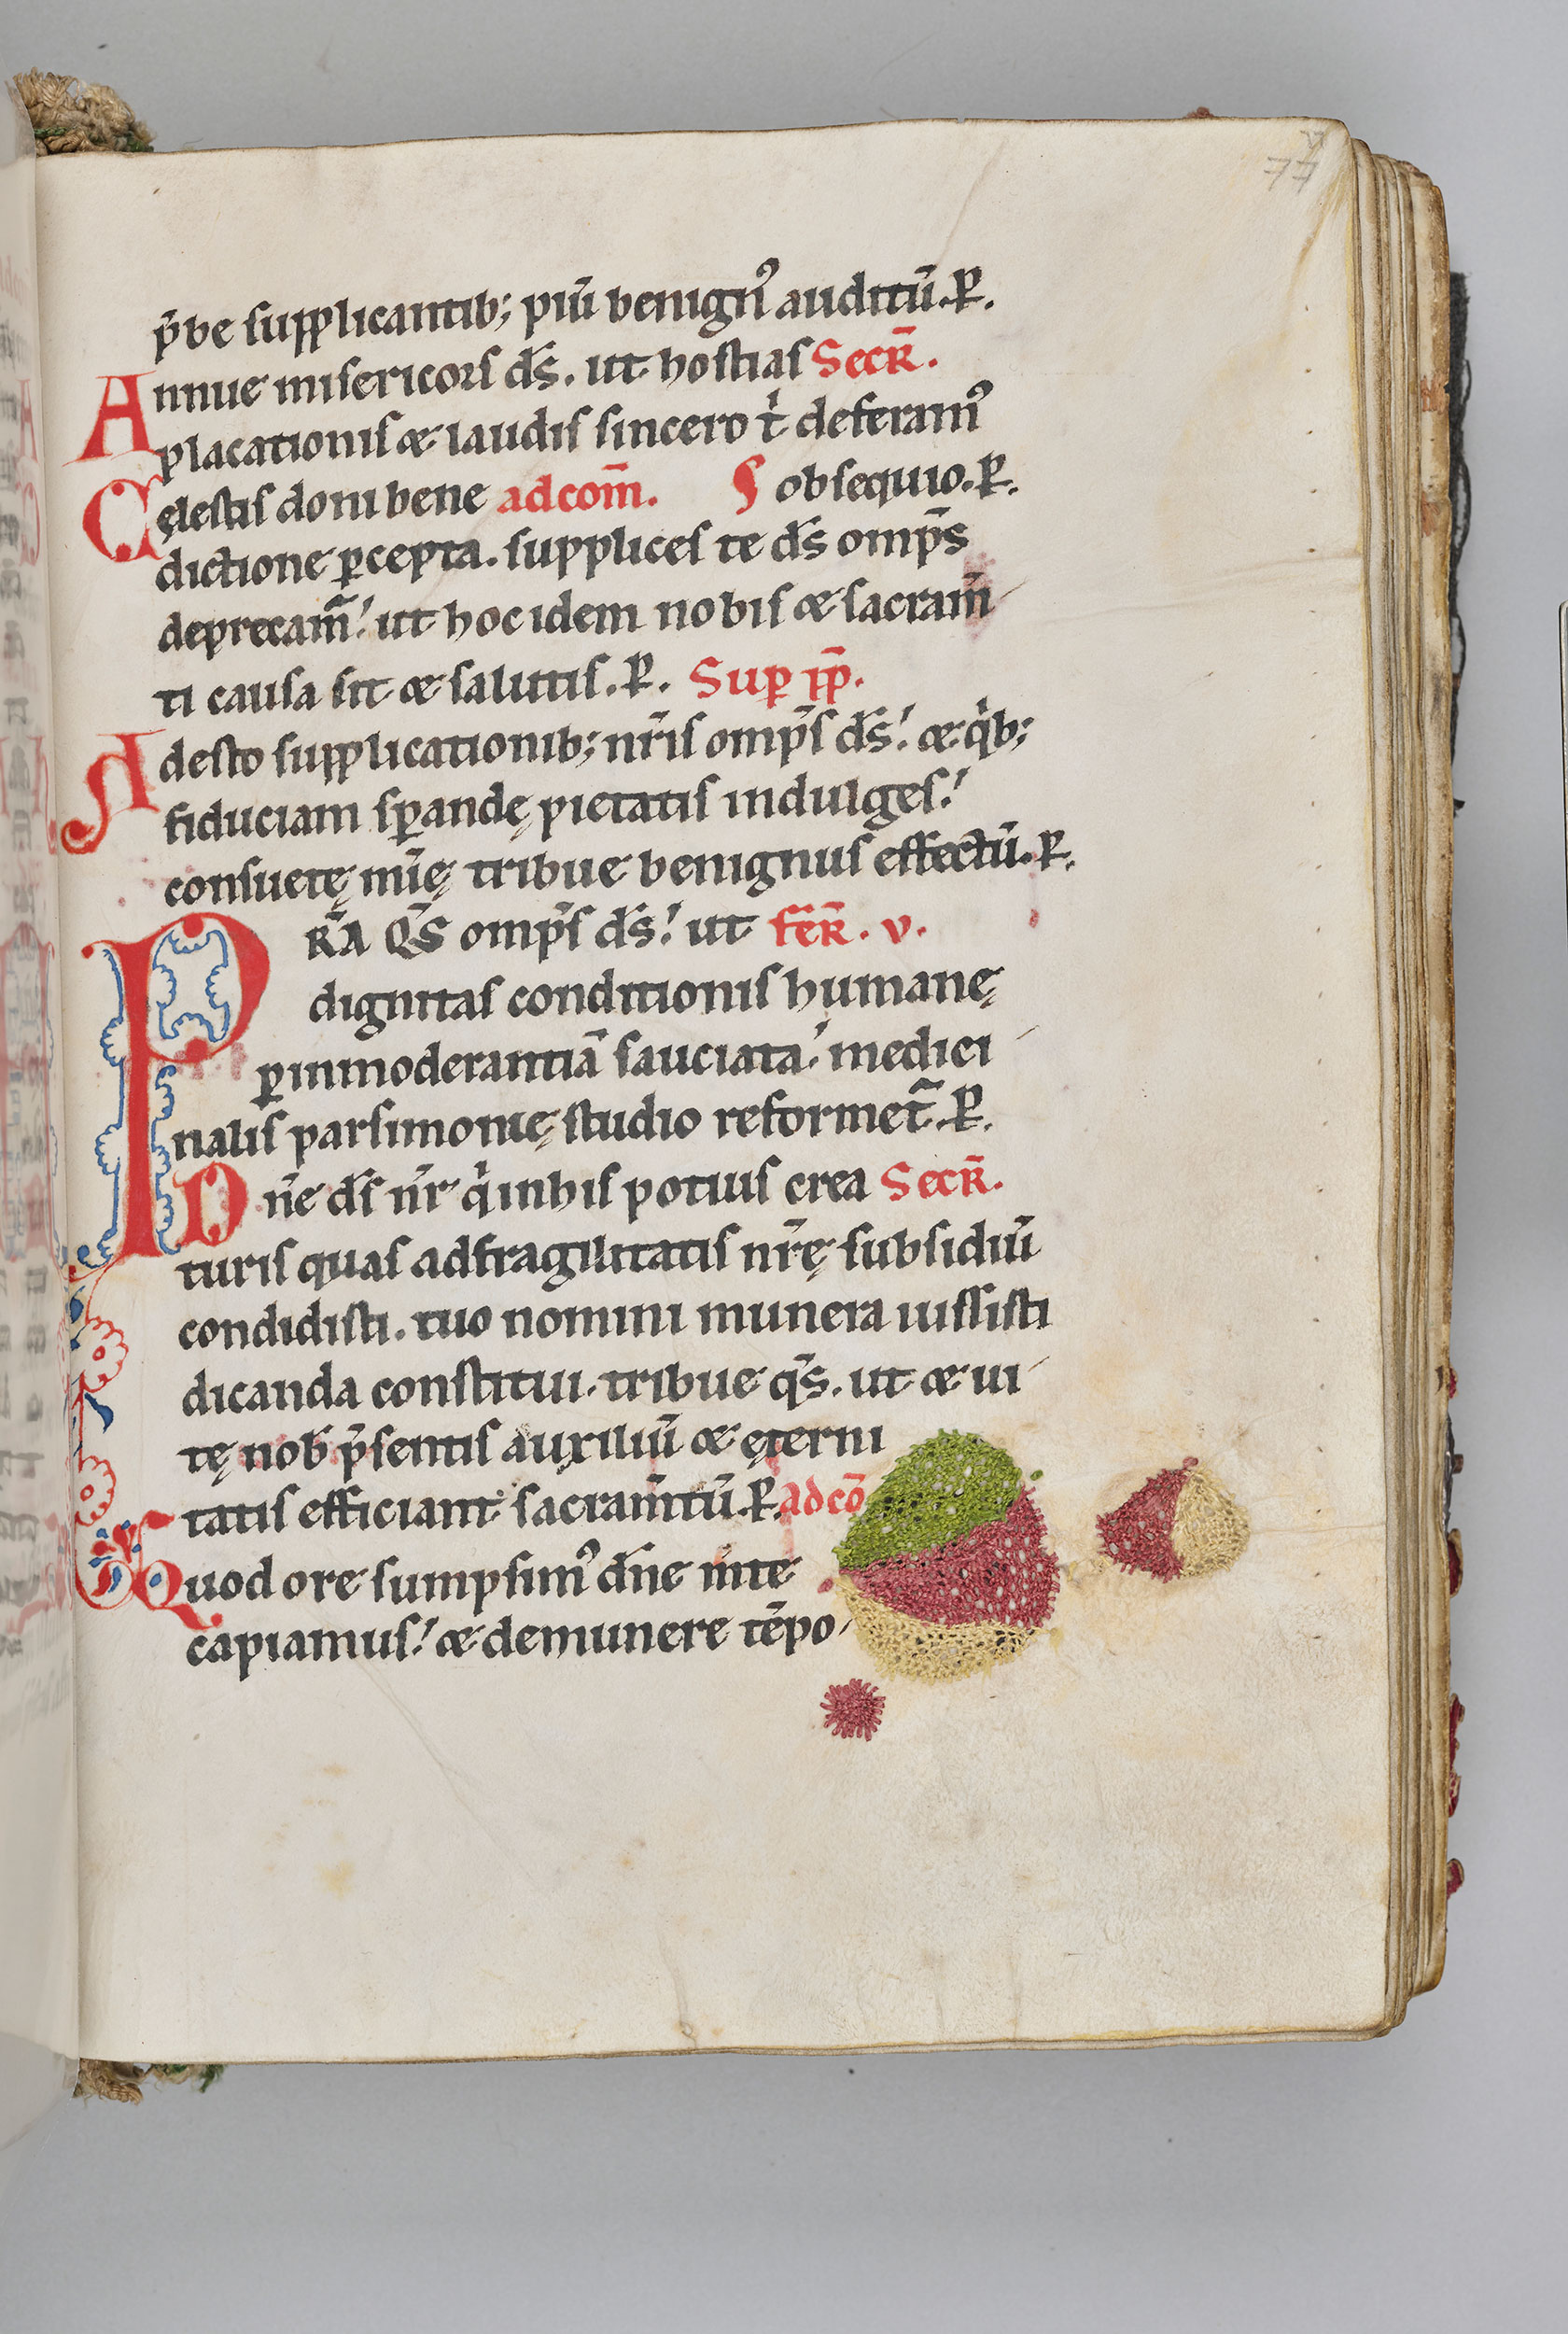 77
p̄be supplicantib; piū benignꝰ auditū. P̱.
Annue misericors ds̄. ut hostias Secr̄.
placationis & laudis sincero t' deferamꝰ
Cęlestis doni bene ad com̄. ¶ obsequio. P̱.
dictione ꝑcepta. supplices te ds̄ omp̄s
deprecam̄! ut hoc idem nobis & sacram̄
ti causa sit & salutis. P̱. Sup pp̄.
Adesto supplicationib; nr̄is omp̄s ds̄! & qⁱb;
fiduciam sꝑandę pietatis indulges!
consuetę mīę tribue benignus effectū. P̱.
PR̄A QS̄ omp̄s ds̄! ut FER̄. V.
dignitas conditionis humanę
ꝑ inmoderantiā sauciata! medici
nalis parsimonię studio reformet̄. P̱.
Dn̄e ds̄ nr̄ qⁱ in his potius crea Secr̄.
turis quas ad fragilitatis nr̄ę subsidiū
condidisti. tuo nomini munera iussisti
dicanda constitui. tribue qs̄. ut & ui
tę nob̄ p̄sentis auxiliū & ęterni
tatis efficiant sacram̄tū. P̱. ad cō
Quod ore sumpsimꝰ dn̄e m̄te
capiamus! & de munere tēpo